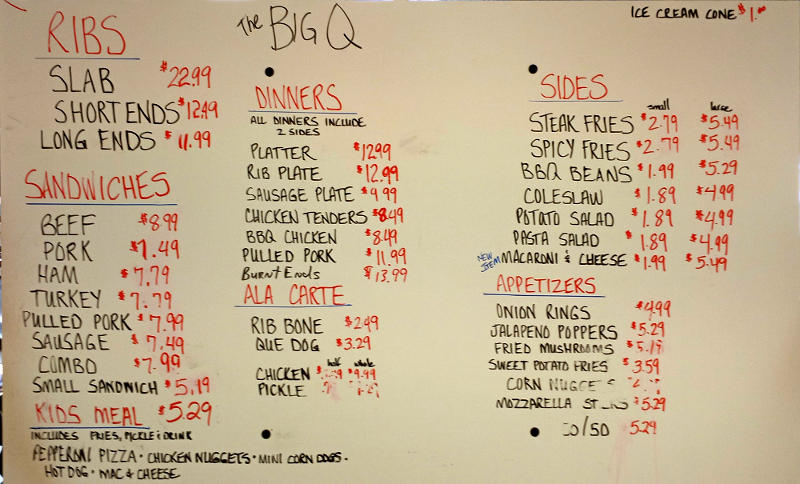 The BIG Q
ICE CREAM CONE $1.00
RIBS
SLAB $22.99
SHORT ENDS $12.49
LONG ENDS $11.99
SANDWICHES
BEEF $8.99
PORK $7.49
HAM $7.79
TURKEY $7.79
PULLED PORK $7.99
SAUSAGE $7.49
COMBO $7.99
SMALL SANDWICH $5.19
KIDS MEAL $5.29
INCLUDES FRIES, PICKLE & DRINK
PEPPERONI PIZZA · CHICKEN NUGGETS · MINI CORN DOGS ·
HOT DOG · MAC & CHEESE
DINNERS
ALL DINNERS INCLUDE
2 SIDES
PLATTER $12.99
RIB PLATE $12.99
SAUSAGE PLATE $9.99
CHICKEN TENDERS $8.49
BBQ CHICKEN $8.49
PULLED PORK $11.99
Burnt Ends $13.99
ALA CARTE
RIB BONE $2.49
QUE DOG $3.29
half whole
CHICKEN $9.99
PICKLE
SIDES
small large
STEAK FRIES $2.79 $5.49
SPICY FRIES $2.79 $5.49
BBQ BEANS $1.99 $5.29
COLESLAW $1.89 $4.99
POTATO SALAD $1.89 $4.99
PASTA SALAD $1.89 $4.99
NEW ITEM MACARONI & CHEESE $1.99 $5.49
APPETIZERS
ONION RINGS $4.99
JALAPENO POPPERS $5.29
FRIED MUSHROOMS $5.19
SWEET POTATO FRIES $3.59
CORN
MOZZARELLA $5.29
50/50 5.29